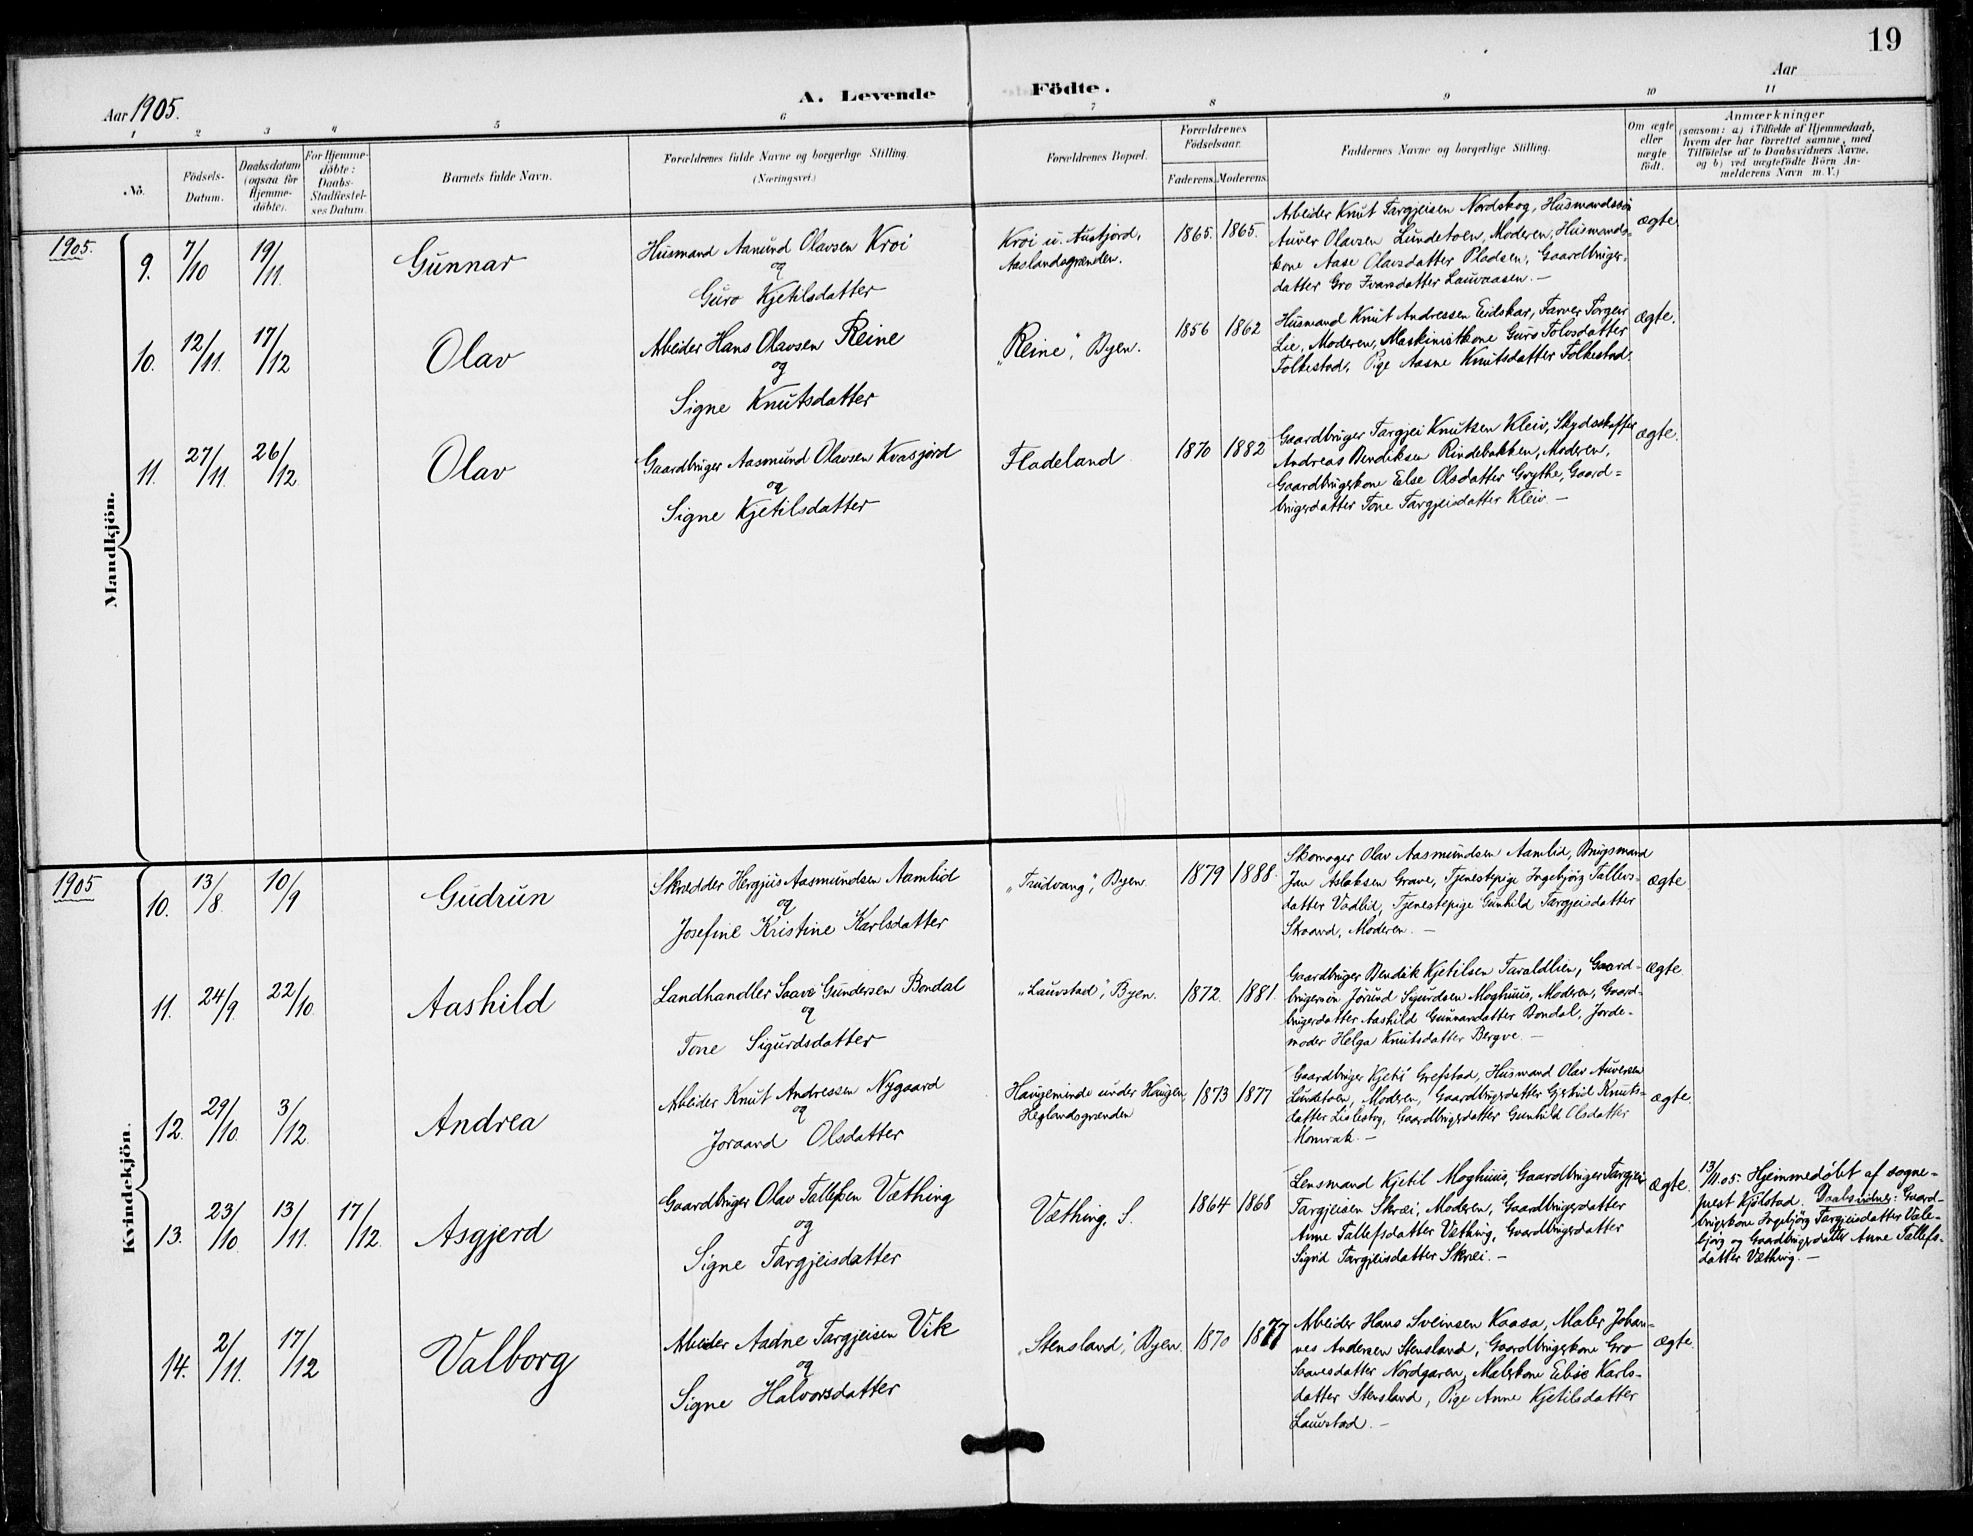 19
Aar 1905.
A. Levende Födte.
Aar
1 2 3 4 5 6 7 8 9 10 11
No.
Födsels-Datum.
Daabsdatum (ogsaa for Hjemme-döbte).
For Hjemme-döbte: Daabs-Stadfæstel-ses Datum.
Barnets fulde Navn.
Forældrenes fulde Navne og borgerlige Stilling. (Næringsvei.)
Forældrenes Bopæl.
Forældrenes Födselsaar.
Faderens. Moderens.
Faddernes Navne og borgerlige Stilling.
Om ægte eller uægte födt.
Anmærkninger
(saasom: a) i Tilfælde af Hjemmedaab,
hvem der har forrettet samme, med
Tilföielse af to Daabsvidners Navne,
og b) ved uægtefödte Börn An-
melderens Navn m.V.)
Mandkjön.
1905.
9. 7/10 19/11. Gunnar
Husmand Aanund Olavsen Kroi
og
Guro Kjetilsdatter
Kroi u. Austjord,
Aaslandsgrænden.
1865. 1865.
Arbeider Knut Targjeisen Nordskog, Husmandssøn
Auver Olavsen Lundetoen, Moderen, Husmands-
kone Aase Olavsdatter Pladsen, Gaardbruger-
datter Gro Ivarsdatter Lauvaasen. —
ægte
10. 12/11. 17/12 Olav
Arbeider Hans Olavsen Reine
og
Signe Knutsdatter
"Reine", Byen.
1856 1862
Husmand Knut Andressen Eidskar, Farver Torgeir
Lie, Moderen, Maskinistkone Guro Tolvsdatter
Folkestad, Pige Aasne Knutsdatter Folkestad.
ægte.
11. 27/11. 26/12 Olav
Gaardbruger Aasmund Olavsen Kvasjord
og
Signe Kjetilsdatter
Fladeland
1870 1882
Gaardbruger Targjei Knutsen Kleiv, Skydsskaffer
Andreas Bendiksen Rindebakken, Moderen,
Gaardbrugerkone Else Olsdatter Grythe, Gaard-
brugerdatter Tone Targjeisdatter Kleiv —
ægte.
Kvindekjön.
1905
10. 13/8 10/9 Gudrun
Skrædder Hergjus Aasmundsen Aamlid
og
Josefine Kristine Karlsdatter
"Trudvang", Byen.
1879 1888.
Skomager Olav Aasmundsen Aamlid, Brugsmand
Jan Aslaksen Grave, Tjenestepige Ingebjørg Tallevs-
datter Vadlid, Tjenestepige Gunhild Targjeisdatter
Straand, Moderen. —
ægte
11. 24/9. 22/10 Aashild
Landhandler Saave Gundersen Bondal
og
Tone Sigurdsdatter
"Lauvstad", Byen.
1872. 1881.
Gaardbruger Bendik Kjetilsen Taraldlien, Gaard-
brugersøn Jørund Sigurdsen Moghuus, Moderen, Gaard-
brugerdatter Aashild Gunnarsdatter Bondal, Jorde-
moder Helga Knutsdatter Bergve. —
ægte
12. 29/10. 3/12 Andrea
Arbeider Knut Andressen Nygaard
og
Joraand Olsdatter
Haugeminde under Haugen,
Heglandsgrænden
1873 1877
Gaardbruger Kjetil Grefstad, Husmand Olav Auversen
Lundetoen, Moderen, Gaardbrugerdatter Gjertrud Knuts-
datter Lislestog, Gaardbrugerdatter Gunhild Olsdatter
Momrak. —
ægte.
13. 23/10 13/11. 17/12. Asgjerd
Gaardbruger Olav Tallefsen Væthing
og
Signe Targjeisdatter
Væthing, S.
1864 1868
Lensmand Kjetil Moghuus, Gaardbruger Targjei
Targjeisen Skræi, Moderen, Gaardbrugerdatter
Anne Tallefsdatter Væthing, Gaardbrugerdatter
Sigrid Targjeisdatter Skræi. —
ægte.
13/11.05. Hjemmedøbt af sogne-
prest Kjølstad. Daabsvidner: Gaard-
brugerkone Ingebjørg Targjeisdatter Vale-
bjørg og Gaardbrugerdatter Anne Tallefs-
datter Væthing. —
14. 2/11. 17/12 Valborg
Arbeider Aadne Targjeisen Vik
og
Signe Halvorsdatter
"Stensland", Byen.
1870 1877
Arbeider Hans Sveinsen Kaasa, Maler Johan-
nes Andersen Stensland, Gaardbrugerkone Gro
Saavesdatter Nordgaren, Malerkone Ebise Karls-
datter Stensland, Pige Anne Kjetilsdatter
Lauvstad. —
ægte